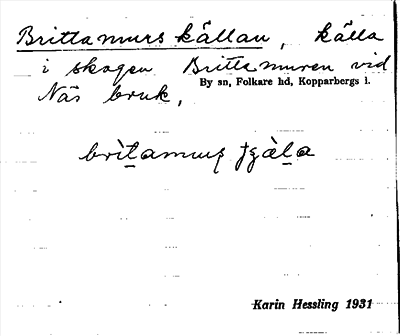 Brittamurs källan, källa
i skogen Brittamuren vid
By sn, Folkare hd, Kopparbergs l.
Näs bruk,
Karin Hessling 1931